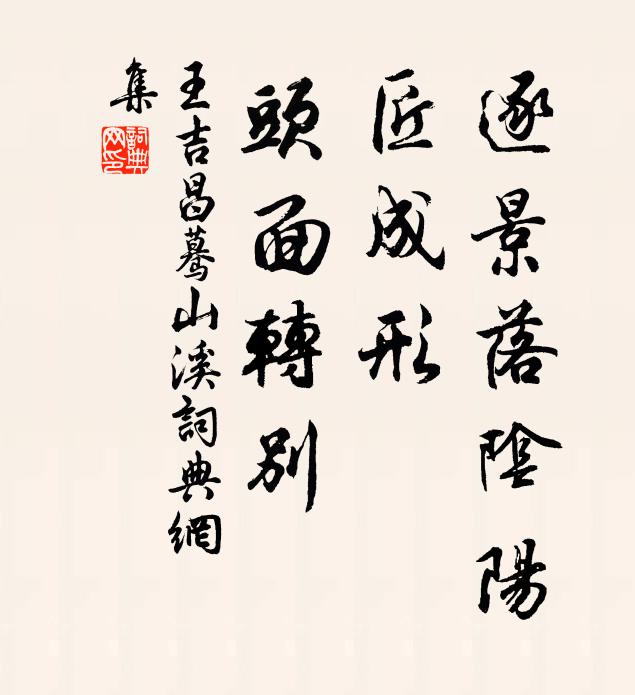 逐景落陰陽
匠成形
頭面轉別
王吉昌驀山溪詞典網
集
詞典網印